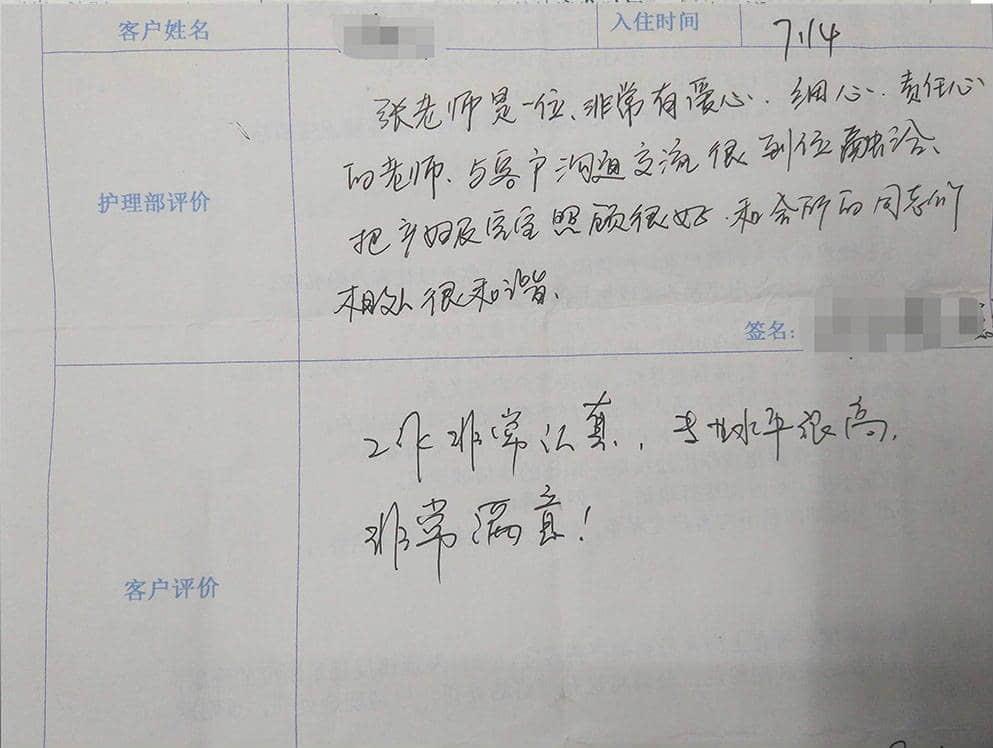 客户姓名 入住时间 7.14
张老师是一位、非常有爱心、细心、责任心
的老师、与客户沟通交流很到位融洽、
护理部评价
把产妇及宝宝照顾很好、和会所的同志们
相处很和谐、
签名:
工作非常认真，专业水平很高，
非常满意！
客户评价